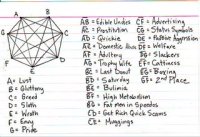 A
B
G
C
F
E
D
A = Lust
B = Gluttony
C = Greed
D = Sloth
E = Wrath
F = Envy
G = Pride
AB = Edible Undies
AC = Prostitution
AD = Quickie
AE = Domestic Abuse
AF = Adultery
AG = Trophy Wife
BC = Last Donut
BD = Saturday
BE = Bulimia
BF = High Metabolism
BG = Fat men in Speedos
CD = Get Rich Quick Scams
CE = Muggings
CF = Advertising
CG = Status Symbols
DE = Passive Aggression
DF = Welfare
DG = Slackers
EF = Cattiness
EG = Boxing
FG = 2nd Place